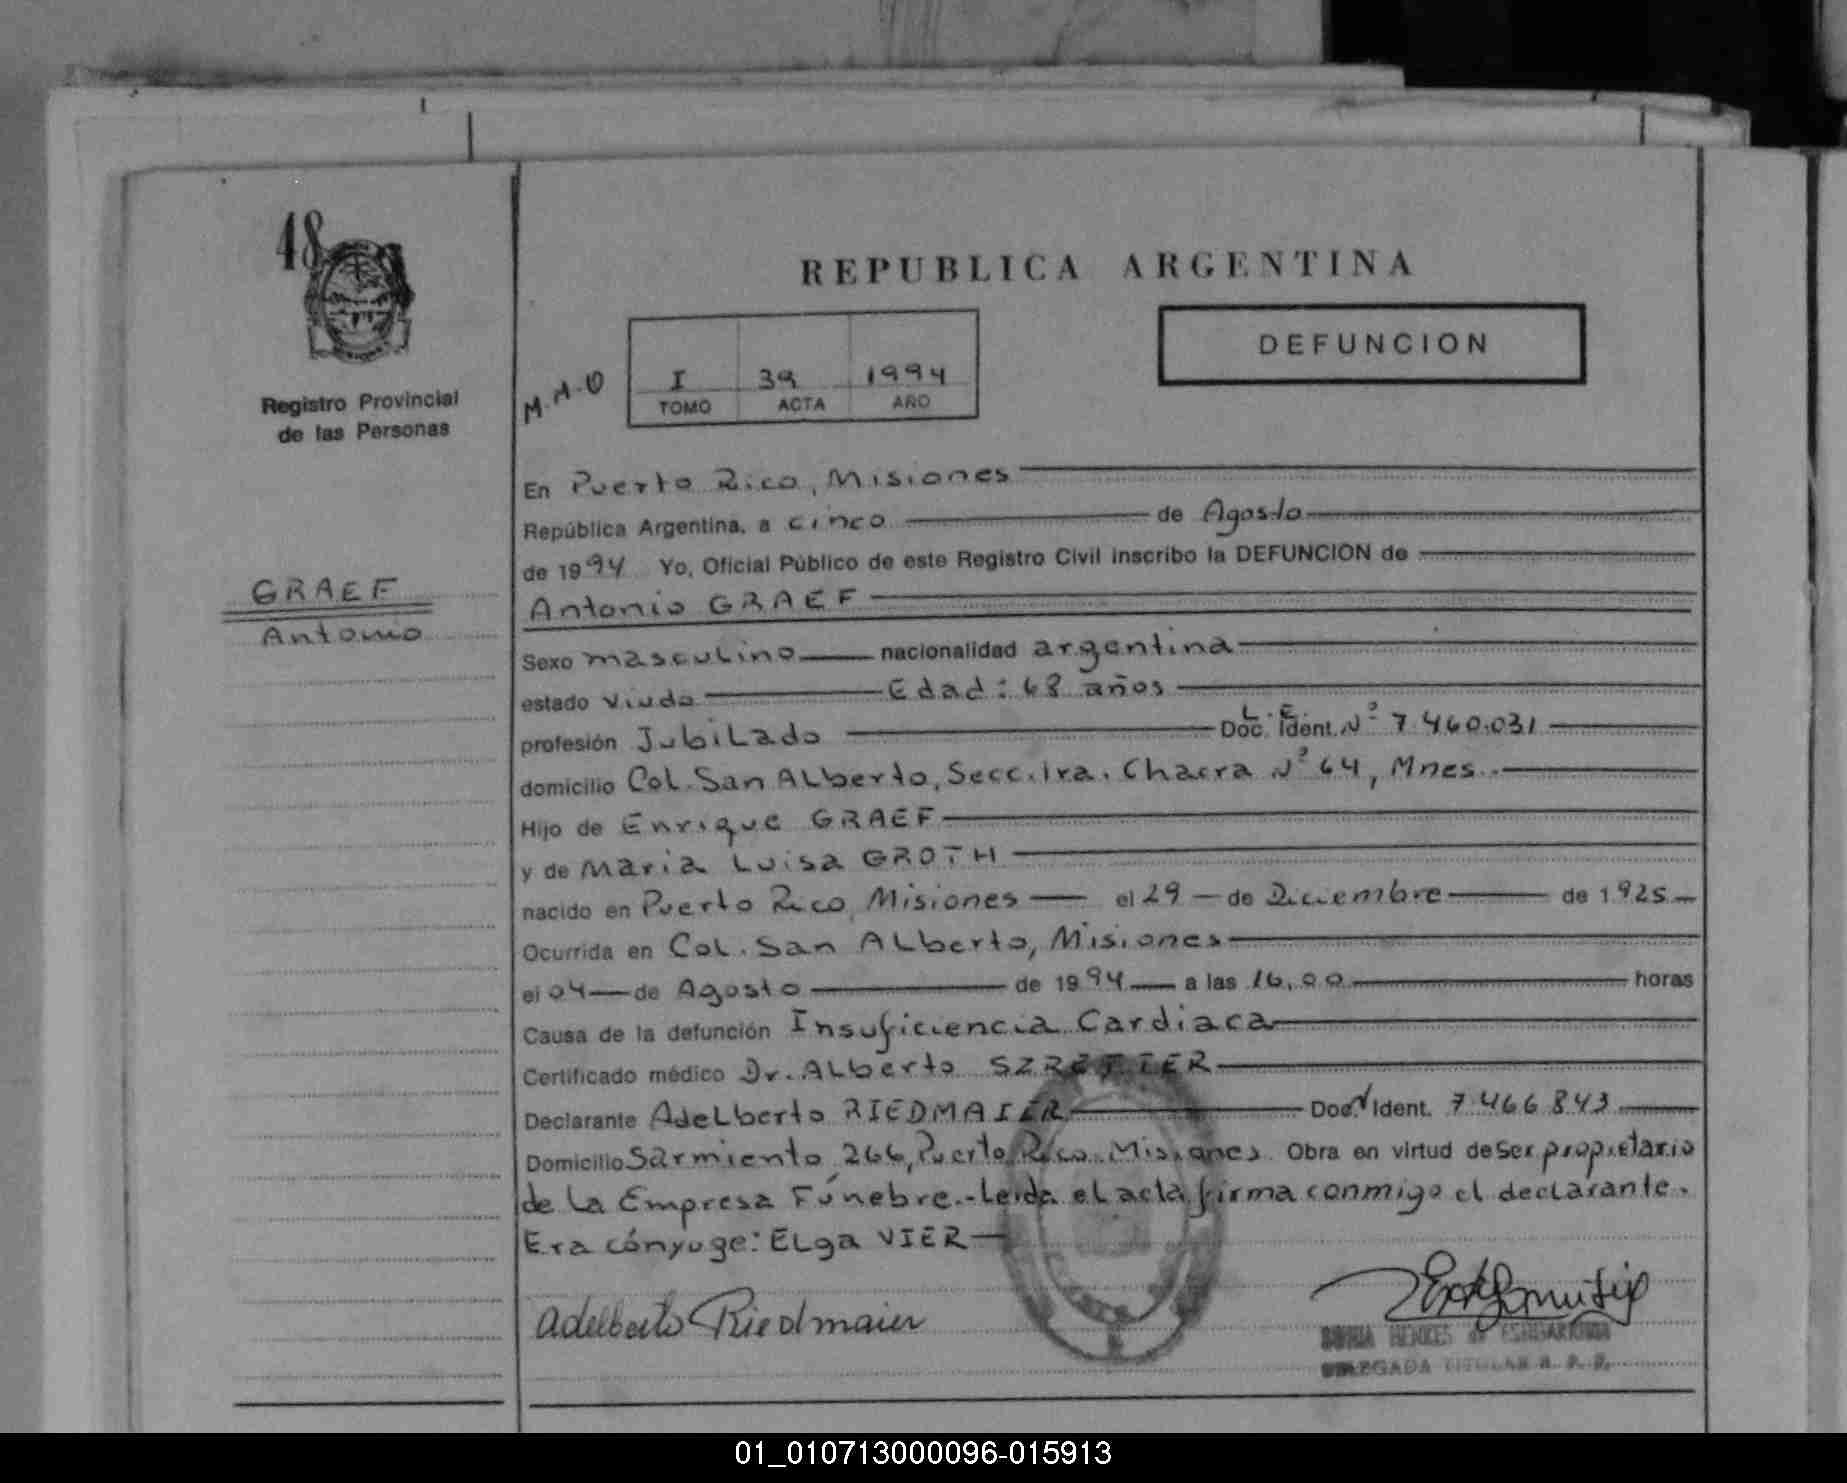 48
Registro Provincial
de las Personas
GRAEF
Antonio
REPUBLICA ARGENTINA
M.A.O
I 39 1994
TOMO ACTA AÑO
DEFUNCION
En Puerto Rico, Misiones
República Argentina, a cinco de Agosto
de 1994 Yo, Oficial Público de este Registro Civil inscribo la DEFUNCION de
Antonio GRAEF
Sexo masculino nacionalidad argentina
estado Viudo Edad: 68 años
profesión Jubilado L.E. Doc. Ident. Nº 7.460.031
domicilio Col. San Alberto, Secc. 1ra. Chacra Nº 64, Mnes.
Hijo de Enrique GRAEF
y de Maria Luisa GROTH
nacido en Puerto Rico, Misiones el 29 de Diciembre de 1925
Ocurrida en Col. San Alberto, Misiones
el 04 de Agosto de 1994 a las 16,00 horas
Causa de la defunción Insuficiencia Cardiaca
Certificado médico Dr. Alberto
Declarante Adelberto RIEDMAIER Doc. Ident. 7.466.843
Domicilio Sarmiento 266, Puerto Rico. Misiones. Obra en virtud de ser propietario
de la Empresa Fúnebre.- Leida el acta firma conmigo el declarante.
Era cónyuge: Elga VIER
Adelberto Riedmaier
DELEGADA TITULAR R. P. P.
01_010713000096-015913